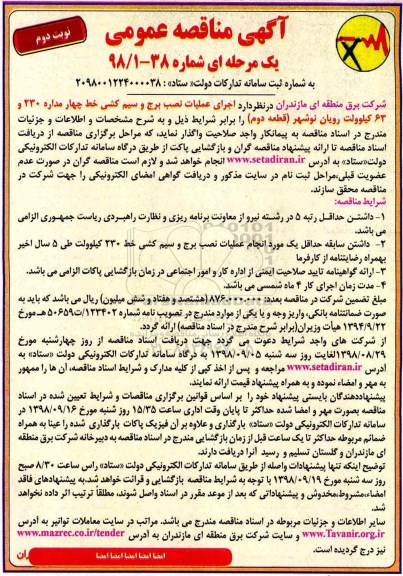 نوبت دوم
آگهی مناقصه عمومی
یک مرحله ای شماره ۳۸-۹۸/۱
به شماره ثبت سامانه تدارکات دولت« ستاد» : ۲۰۹۸۰۰۱۲۲۴۰۰۰۰۳۸
شرکت برق منطقه ای مازندران درنظردارد اجرای عملیات نصب برج و سیم کشی خط چهار مداره ۲۳۰ و
۶۳ کیلوولت رویان نوشهر (قطعه دوم) را برابر شرایط ذیل و به شرح مشخصات و اطلاعات و جزئیات
مندرج در اسناد مناقصه به پیمانکار واجد صلاحیت واگذار نماید، که مراحل برگزاری مناقصه از دریافت
اسناد مناقصه تا ارائه پیشنهاد مناقصه گران و بازگشایی پاکت از طریق درگاه سامانه تدارکات الکترونیکی
دولت«ستاد» به آدرس www.setadiran.ir انجام خواهد شد و لازم است مناقصه گران در صورت عدم
عضویت قبلی،مراحل ثبت نام در سایت مذکور و دریافت گواهی امضای الکترونیکی را جهت شرکت در
مناقصه محقق سازند.
شرایط مناقصه:
۱- داشتن حداقل رتبه ۵ در رشته نیرو از معاونت برنامه ریزی و نظارت راهبردی ریاست جمهوری الزامی
می باشد.
۲- داشتن سابقه حداقل یک مورد انجام عملیات نصب برج و سیم کشی خط ۲۳۰ کیلوولت طی ۵ سال اخیر
بهمراه رضایتنامه از کارفرما
۳- ارائه گواهینامه تایید صلاحیت ایمنی از اداره کار و امور اجتماعی در زمان بازگشایی پاکات الزامی می باشد.
۴- مدت زمان اجرای کار ۴ ماه شمسی می باشد.
مبلغ تضمین شرکت در مناقصه بعدد: ۸۷۶.۰۰۰.۰۰۰ (هشتصد و هفتاد و شش میلیون) ریال می باشد که باید به
صورت ضمانتنامه بانکی، واریز وجه و یا یکی از موارد مندرج در تصویب نامه شماره ۱۲۳۴۰۲/ت۵۰۶۵۹هـ مورخ
۱۳۹۴/۹/۲۲ هیأت وزیران(برابر شرح مندرج در اسناد مناقصه) ارائه گردد.
از شرکت های واجد شرایط دعوت می گردد جهت دریافت اسناد مناقصه از روز چهارشنبه مورخ
۱۳۹۸/۰۸/۲۹لغایت روز سه شنبه ۱۳۹۸/۰۹/۰۵ به درگاه سامانه تدارکات الکترونیکی دولت «ستاد» به
آدرس www.setadiran.ir مراجعه و پس از اخذ کپی از کلیه مدارک و شرایط اسناد مناقصه، آن ها را ممهور
به مهر و امضاء نموده و به همراه پیشنهاد قیمت ارائه نمایند.
پیشنهاددهندگان بایستی پیشنهاد خود را بر اساس قوانین برگزاری مناقصات و شرایط تعیین شده در اسناد
مناقصه بصورت مهر و امضا شده حداکثر تا پایان وقت اداری ساعت ۱۵/۳۵ روز شنبه مورخ ۱۳۹۸/۰۹/۱۶ در
سامانه تدارکات الکترونیکی دولت «ستاد» بارگذاری و علاوه بر آن فیزیک پاکات بارگذاری شده را عینا به همراه
ضمائم مربوطه حداکثر تا یک ساعت قبل از زمان بازگشایی مندرج در اسناد مناقصه به دبیرخانه شرکت برق منطقه
ای مازندران و گلستان تسلیم و رسید آنرا دریافت دارند.
توضیح اینکه تنها پیشنهادات واصله از طریق سامانه تدارکات الکترونیکی دولت «ستاد» راس ساعت ۸/۳۰ صبح
روز سه شنبه مورخ ۱۳۹۸/۰۹/۱۹ با توجه به شرایط مناقصه بازگشایی و قرائت خواهد شد.به پیشنهادهای فاقد
امضاء،مشروط،مخدوش و پیشنهاداتی که بعد از موعد مقرر در اسناد واصل شوند، مطلقاً ترتیب اثر داده نخواهد
شد.
سایر اطلاعات و جزئیات مربوطه در اسناد مناقصه مندرج می باشد. مراتب در سایت معاملات توانیر به آدرس
www.Tavanir.org.ir و سایت شرکت برق منطقه ای مازندران به آدرس www.mazrec.co.ir/tender
نیز درج گردیده است.